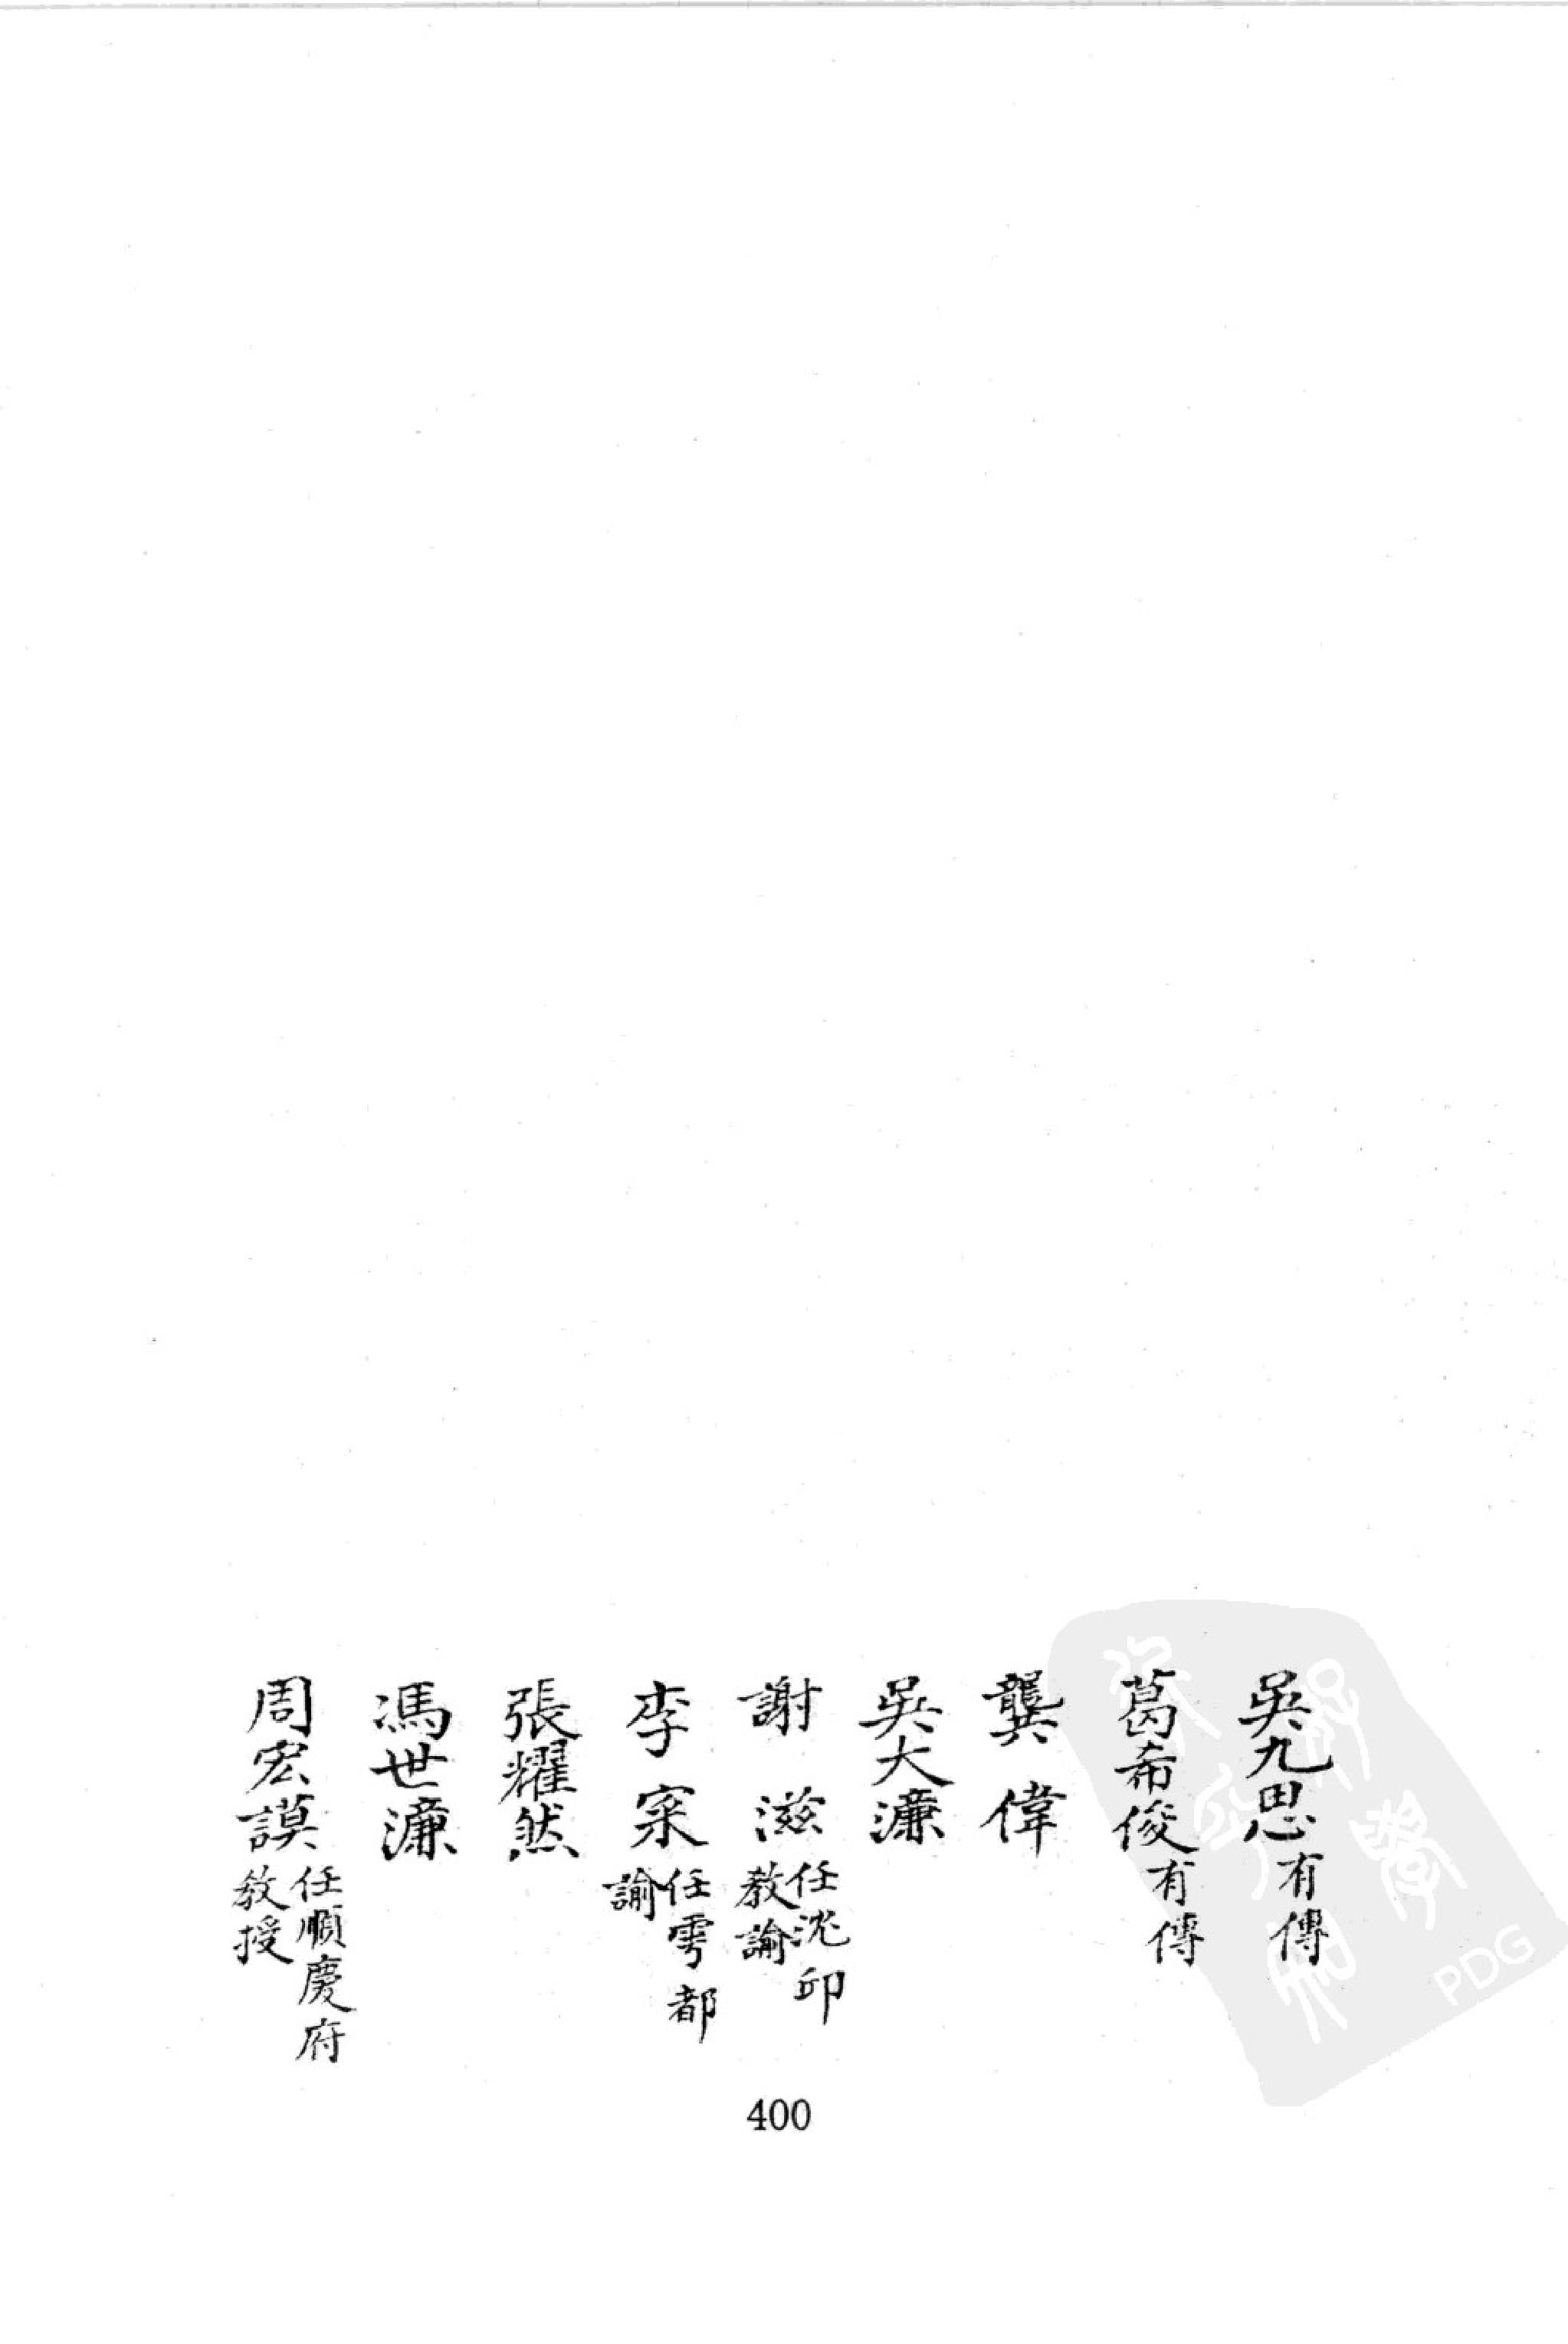 吳九思有傳
葛希俊有傳
龔偉
吳大濂
謝滋任沈邱教諭
李寀任雩都諭
張耀然
馮世濂
周宏謨任順慶府教授
400
PDG